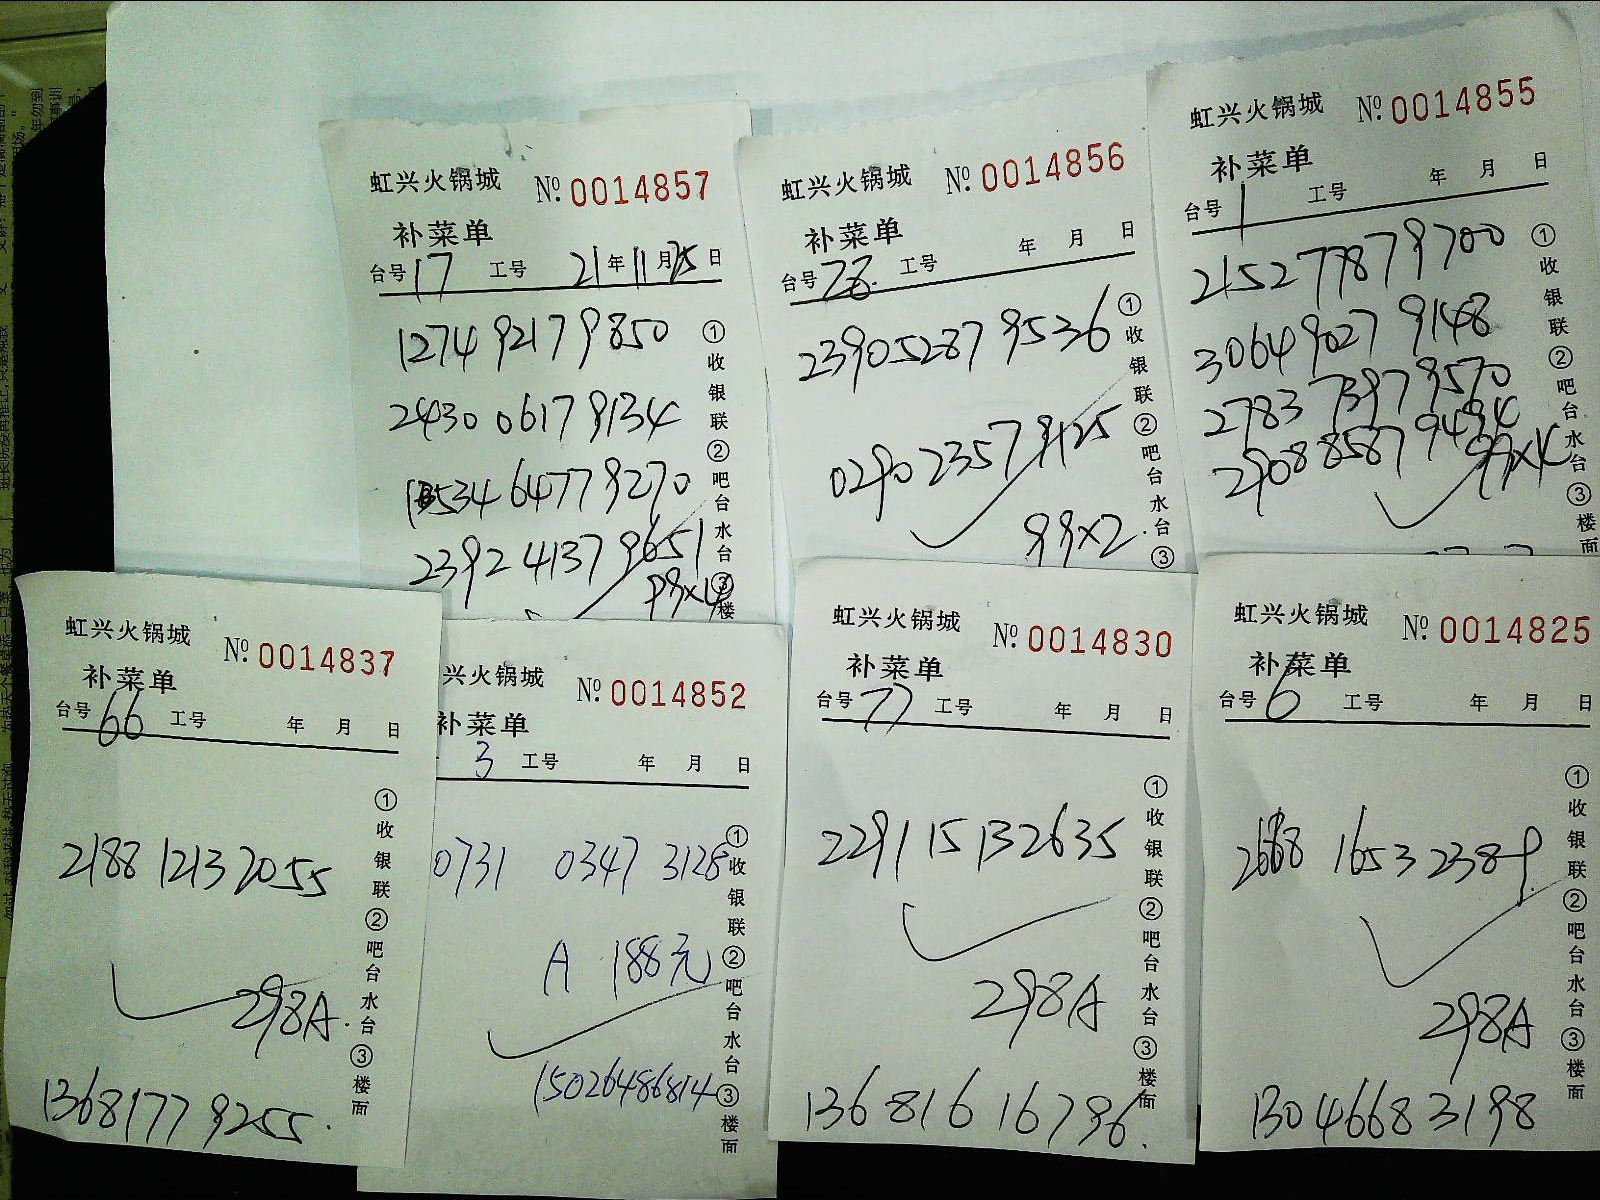 虹兴火锅城 №0014857
补菜单
台号17 工号 21年11月25日
1274 9217 9850
2430 0617 9134
534 6477 9270
2392 4137 9651
99×4
①收银联②吧台水台③楼
虹兴火锅城 №0014856
补菜单
台号 工号 年 月 日
2390 5287 9536
0290 2357 9125
99×2
①收银联②吧台水台③
虹兴火锅城 №0014855
补菜单
台号1 工号 年 月 日
2152 7787 9700
3064 9027 9148
2783 7397 9570
2908 8587 9494
99×4
①收银联②吧台水台③楼面
虹兴火锅城 №0014837
补菜单
台号66 工号 年 月 日
2188 1213 2055
298A.
13681779255.
①收银联②吧台水台③楼面
兴火锅城 №0014852
补菜单
3 工号 年 月 日
0731 0347 3128
A 188元
15026486814
①收银联②吧台水台③楼面
虹兴火锅城 №0014830
补菜单
台号77 工号 年 月 日
2291 1513 2635
298A
13681616796.
①收银联②吧台水台③楼面
虹兴火锅城 №0014825
补菜单
台号6 工号 年 月 日
1653 2389
298A
13046683198
①收银联②吧台水台③楼面